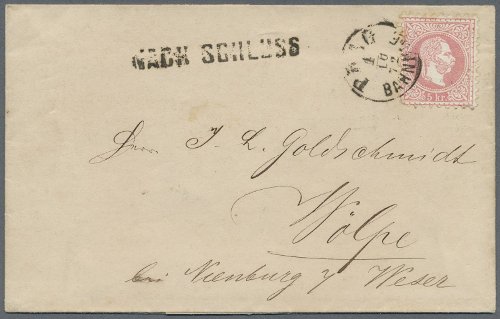 NACH SCHLUSS
PRAG
1
10
72
BAHNHOF
5 kr
Herrn J. L. Goldschmidt
Wölpe
bei Nienburg y Weser